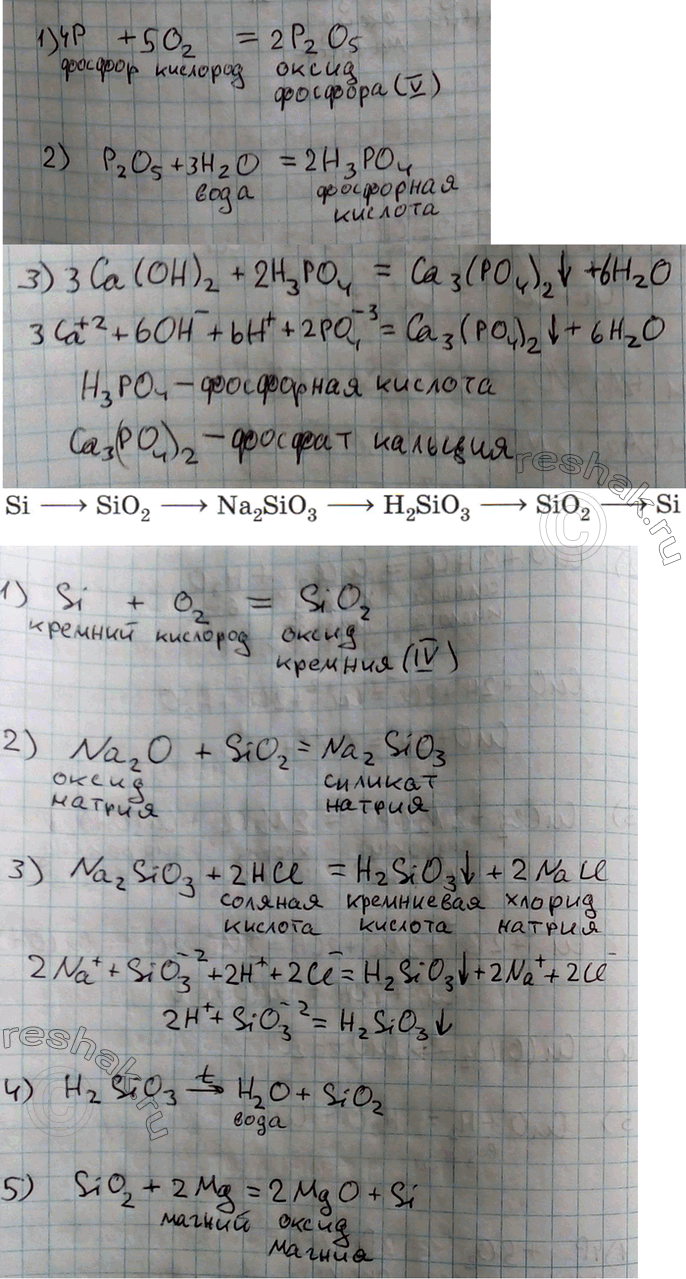 1) 4P + 5O₂ = 2P₂O₅
фосфор кислород оксид
фосфора (V)
2) P₂O₅ + 3H₂O = 2H₃PO₄
вода фосфорная
кислота
3) 3Ca(OH)₂ + 2H₃PO₄ = Ca₃(PO₄)₂↓ + 6H₂O
3Ca⁺² + 6OH⁻ + 6H⁺ + 2PO₄⁻³ = Ca₃(PO₄)₂↓ + 6H₂O
H₃PO₄ – фосфорная кислота
Ca₃(PO₄)₂ – фосфат кальция
reshak.ru
©
Si ⟶ SiO₂ ⟶ Na₂SiO₃ ⟶ H₂SiO₃ ⟶ SiO₂ ⟶ Si
1) Si + O₂ = SiO₂
кремний кислород оксид
кремния (IV)
2) Na₂O + SiO₂ = Na₂SiO₃
оксид силикат
натрия натрия
3) Na₂SiO₃ + 2HCl = H₂SiO₃↓ + 2NaCl
соляная кремниевая хлорид
кислота кислота натрия
2Na⁺ + SiO₃⁻² + 2H⁺ + 2Cl⁻ = H₂SiO₃↓ + 2Na⁺ + 2Cl⁻
2H⁺ + SiO₃⁻² = H₂SiO₃↓
4) H₂SiO₃ →ᵗ H₂O + SiO₂
вода
5) SiO₂ + 2Mg = 2MgO + Si
магний оксид
магния
reshak.ru
©